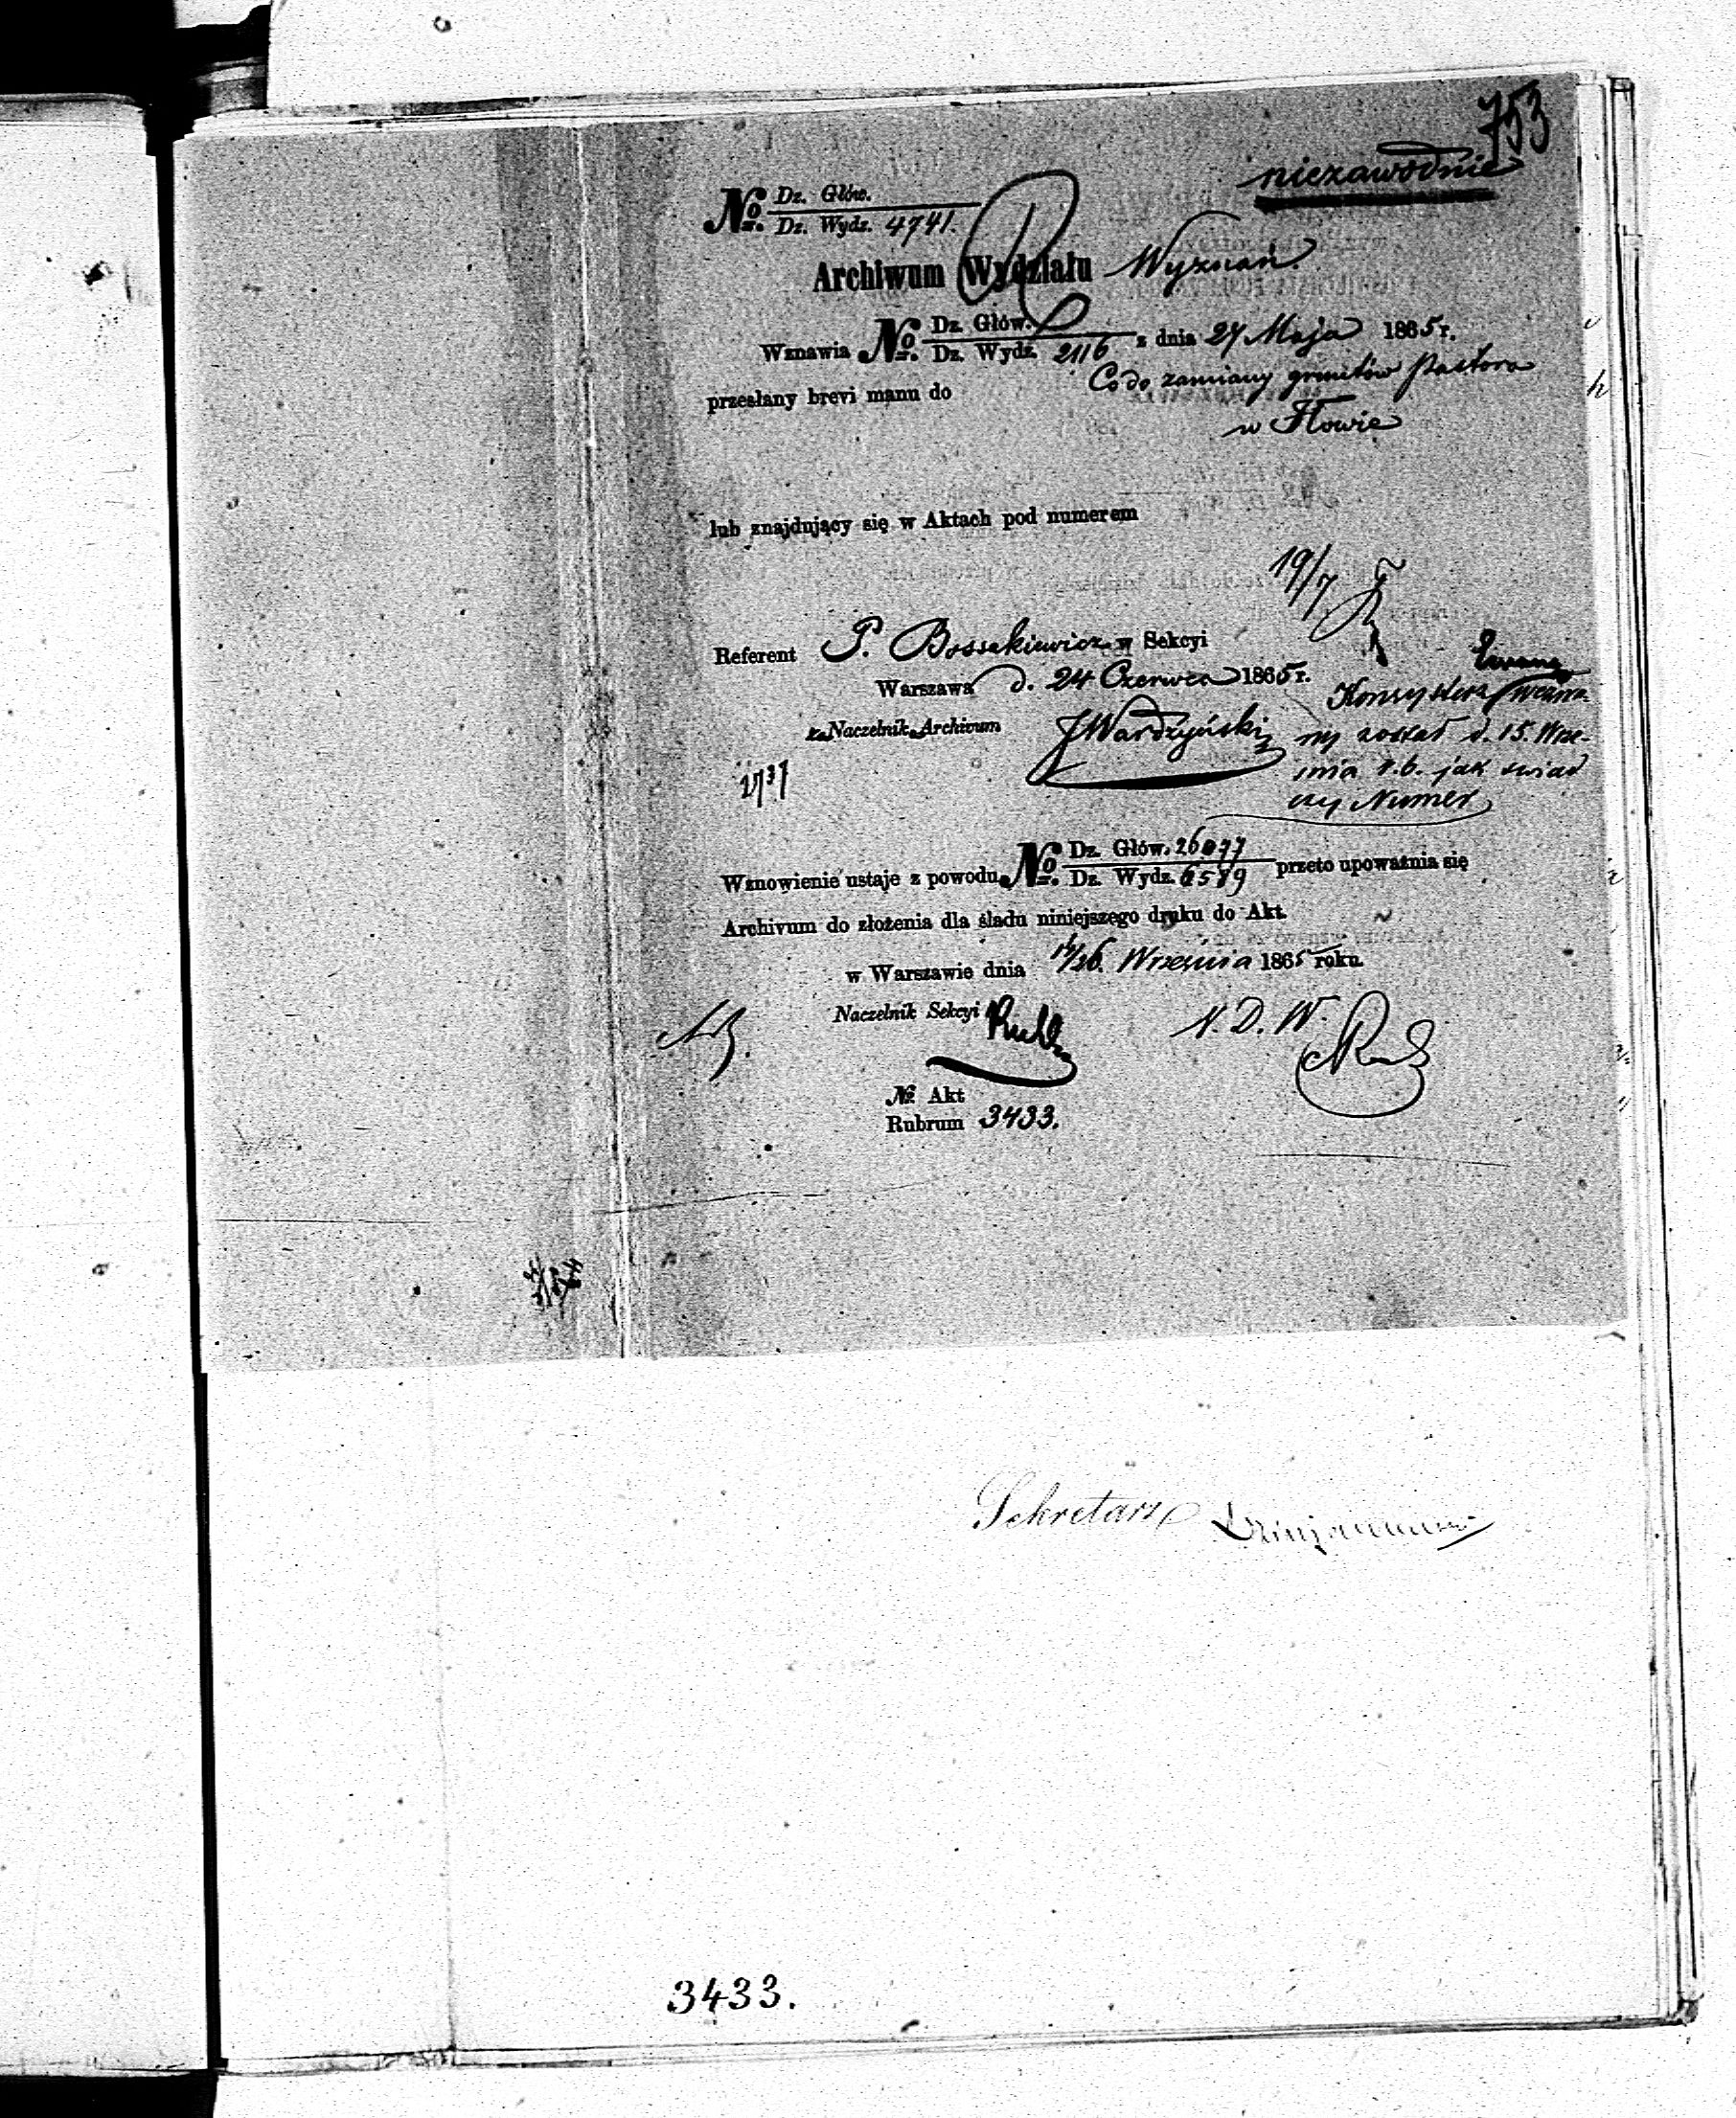 753
niezawodnie
№ Dz. Głów.
Dz. Wydz. 4741.
Archiwum Wydziału Wyznań.
Wznawia № Dz. Głów.
Dz. Wydz. 2116 z dnia 27 Maja 1865 r.
przesłany brevi manu do Co do zamiany gruntów Pastora
w Iłowie
lub znajdujący się w Aktach pod numerem
19/7
Referent P. Bossakiewicz w Sekcyi
Warszawa d. 24 Czerwca 1865 r.
z. Naczelnik Archivum JWardzyński
Konsystorz wezwa-
ny został d. 15. Wrze-
śnia r.b. jak świad
czy Numer
Wznowienie ustaje z powodu № Dz. Głów. 26077
Dz. Wydz. 6579 przeto upoważnia się
Archivum do złożenia dla śladu niniejszego druku do Akt.
w Warszawie dnia 14/26. Września 1865 roku
Naczelnik Sekcyi
N. D. W.
№ Akt
Rubrum 3433.
Sekretarz
3433.